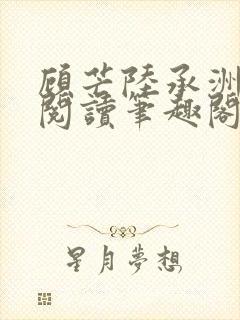 顾芒陸承洲
閱讀筆趣閣
星月夢想